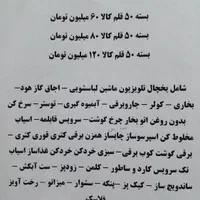 بسته ۵۰ قلم کالا ۶۰ میلیون تومان
بسته ۵۰ قلم کالا ۸۰ میلیون تومان
بسته ۵۰ قلم کالا ۱۲۰ میلیون تومان
شامل یخچال تلویزیون ماشین لباسشویی - اجاق گاز هود-
بخاری - کولر - جاروبرقی - آبمیوه گیری - توستر - سرخ کن
بدون روغن اتو بخار چرخ گوشت - سرویس قابلمه - اسیاب
مخلوط کن اسپرسوساز چایساز همزن برقی کتری قوری کتری -
برقی گوشت کوب برقی - سبزی خردکن خردکن غذاساز اسیاب
تک سرویس کارد و ساطور - کلمن - زودپز - ست آبکش -
ساندویچ ساز - کیک پز - پنکه - سشوار - میزاتو - رخت آویز